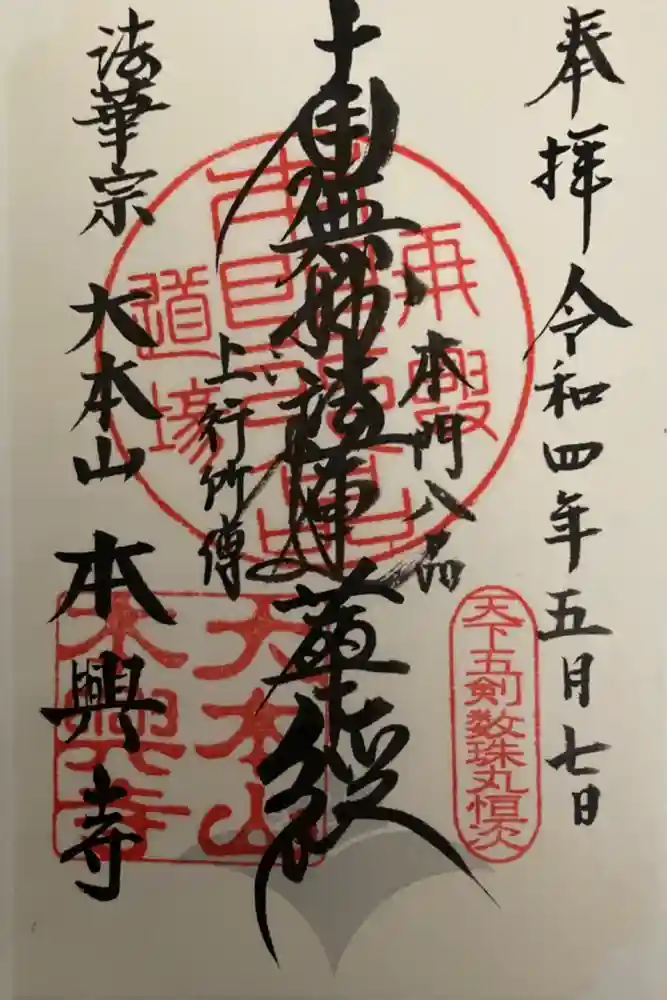 奉拝 令和四年五月七日
天下五剣数珠丸恒次
本門八品
南無妙法蓮華経
上行所傳
道場
法華宗 大本山 本興寺
大本山
本興寺